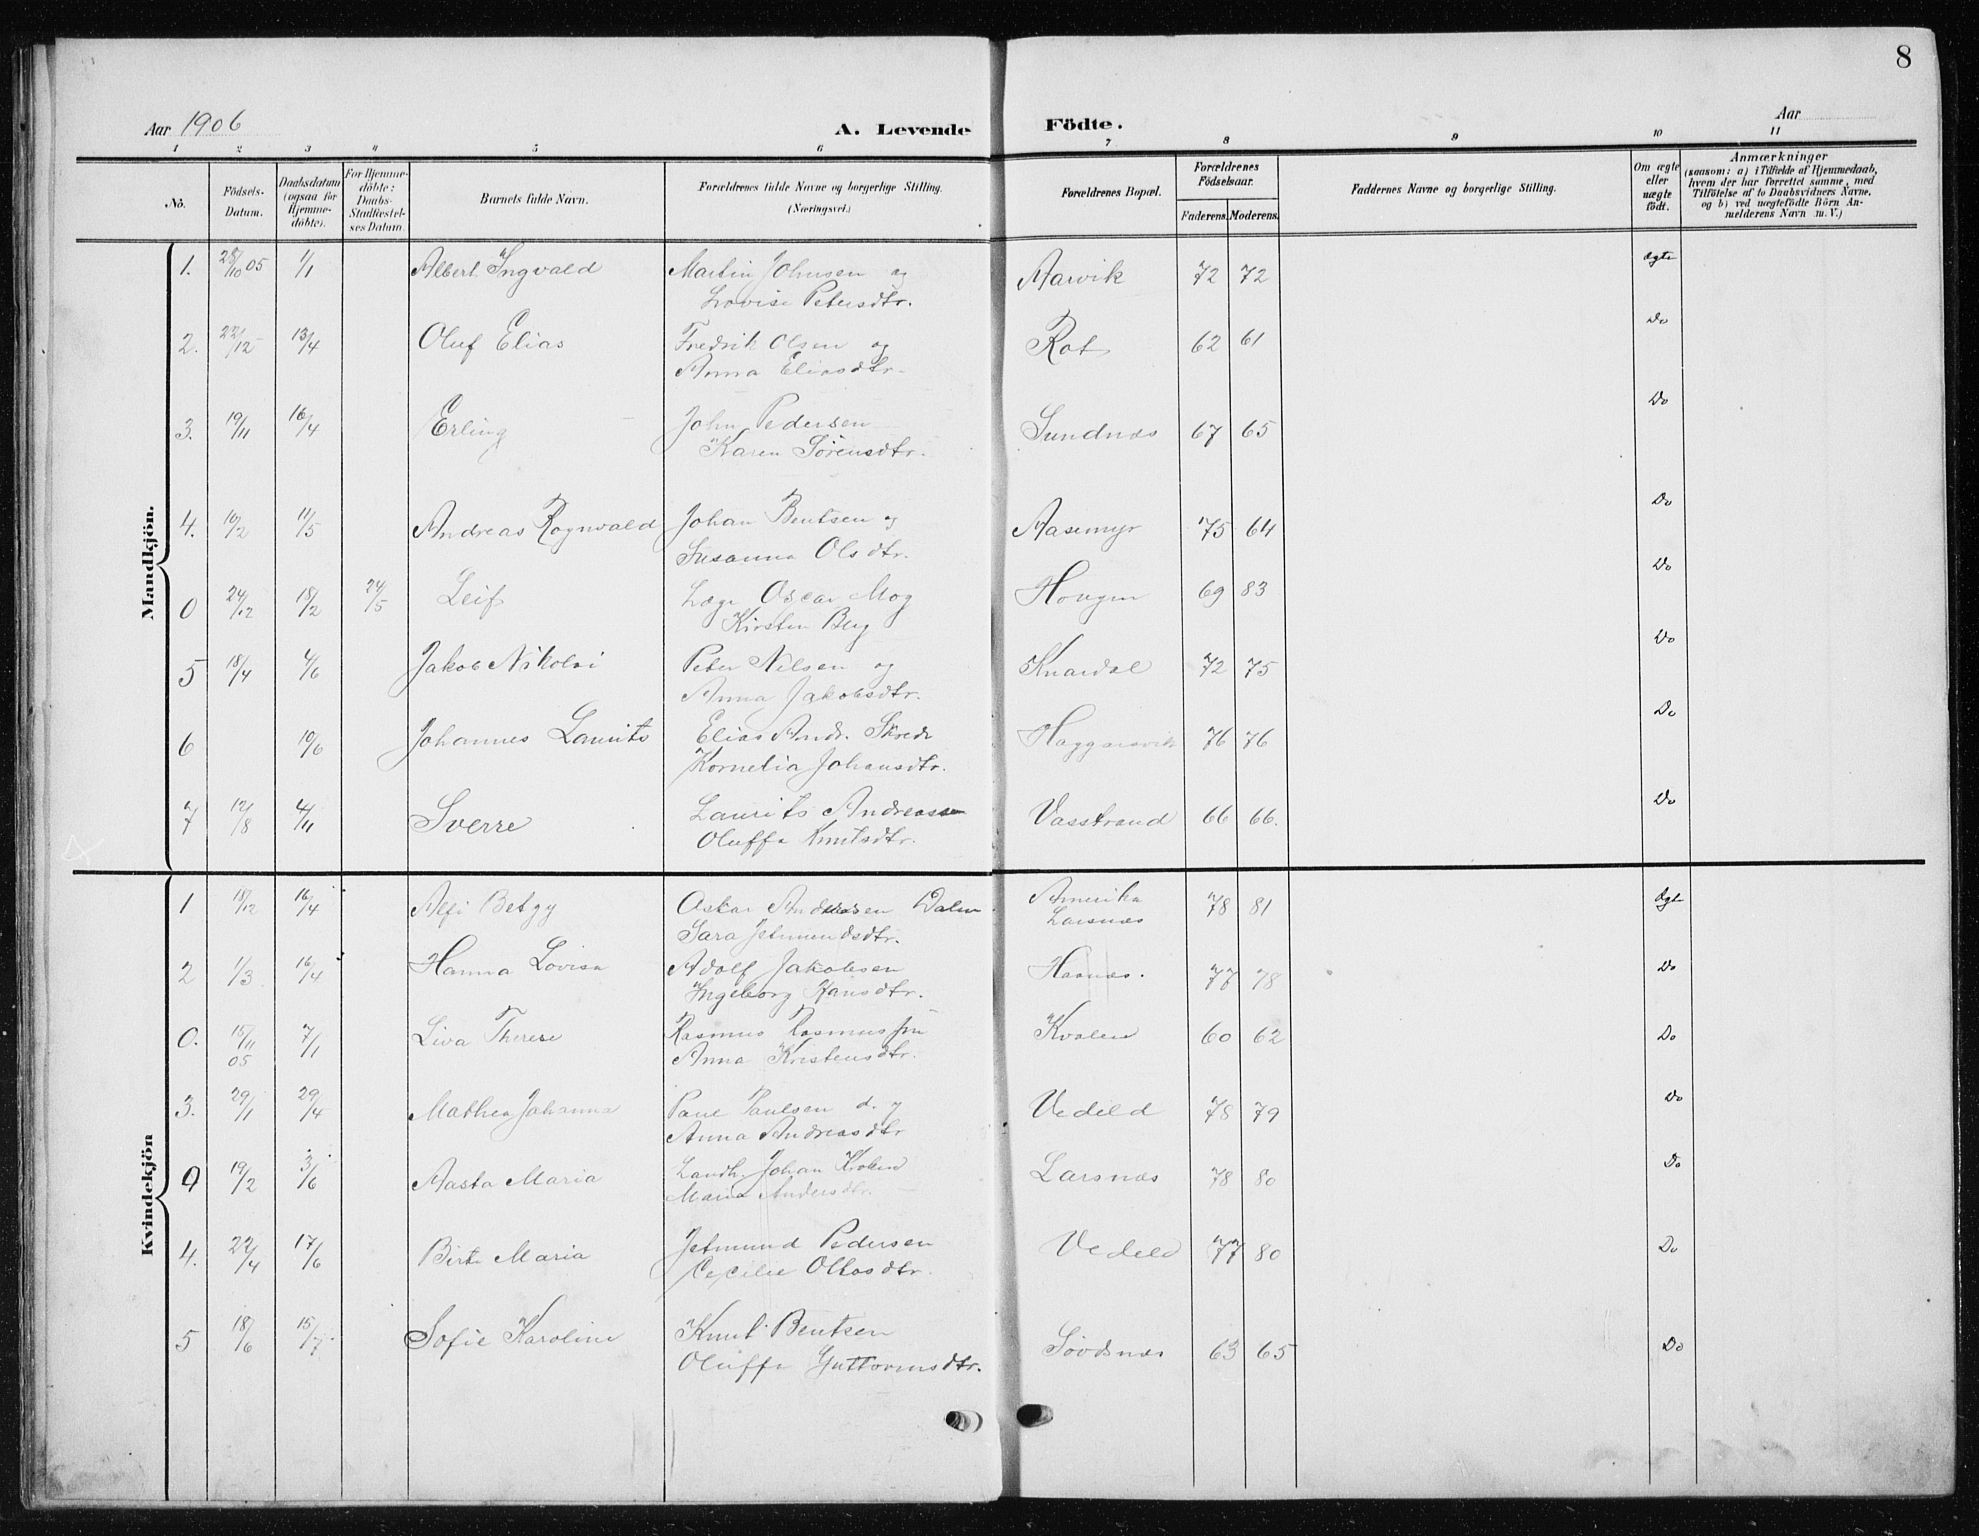 8
Aar 1906 A. Levende Födte. Aar
1 2 3 4 5 6 7 8 9 10 11
No. Födsels-Datum. Daabsdatum (ogsaa for Hjemmedöbte). For Hjemmedöbte: Daabs-Stadfæstelses Datum. Barnets fulde Navn. Forældrenes fulde Navne og borgerlige Stilling. (Næringsvei.) Forældrenes Bopæl. Forældrenes Födselsaar. Faderens. Moderens. Faddernes Navne og borgerlige Stilling. Om ægte eller uægte födt. Anmærkninger (saasom: a) i Tilfælde af Hjemmedaab, hvem der har forrettet samme, med Tilföielse af to Daabsvidners Navne, og b) ved uægtefödte Börn Anmelderens Navn m. V.)
Mandkjön.
1. 25/10 05 1/1 Albert Ingvald Martin Johnsen og Aarvik 72 72 ægte
Lovise Petersdtr.
2. 22/12 13/4 Oluf Elias Fredrik Olsen og Rot 62 61 Do
Anna Eliasdtr.
3. 19/11 16/4 Erling John Pedersen Sundnæs 67 65 Do
Karen Sörensdtr.
4. 10/2 11/5 Andreas Rognvald Johan Bentsen og Aasemyr 75 64 Do
Susanna Olsdtr.
0 24/12 18/2 24/5 Leif Læge Oscar Mog Hougen 69 83 Do
Kirsten Berg
5 18/4 4/6 Jakob Nikolai Peter Nilsen og Knardal 72 75 Do
Anna Jakobsdtr.
6 10/6 Johannes Laurits Elias Andr. Skrede Haggarsvik 76 76 Do
Kornelia Johansdtr.
7 12/8 4/11 Sverre Laurits Andreassen Vasstrand 66 66. Do
Oluffa Knutsdtr.
Kvindekjön
1 18/12 16/4 Alfi Betzy Oskar Andersen Dalen Amerika 78 81 Ægte
Sara Jetmundsdtr. Larsnæs
2 1/3 16/4 Hanna Lovisa Adolf Jakobsen 77 78 Do
Ingeborg Hansdtr.
0. 15/11 05 7/1 Liva Therese Rasmus Rasmussen Kvalen 60 62 Do
Anna Kristensdtr.
3. 29/1 29/4 Mathea Johanna Paul Paulsen d. y Vedeld 78 79 Do
Anna Andreasdtr
0 19/2 3/6 Aasta Maria Landh. Johan Kvalen Larsnæs 78 80 Do
Maria Andersdtr.
4. 22/4 17/6 Birte Maria Jetmund Pedersen Vedeld 77 80 Do
Cecilie Ottosdtr.
5 18/6 15/7 Sofie Karoline Knut Bentsen Sövdsnæs 63 65 Do
Oluffa Guttormsdtr.